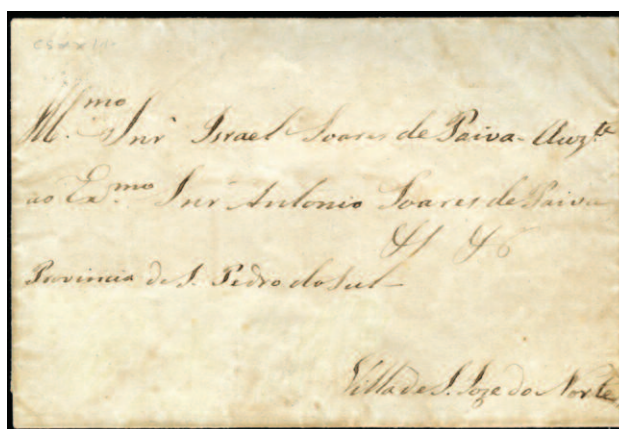 Ill.mo Snr Israel Soares de Paiva - Auz.te
ao Ex.mo Snr Antonio Soares de Paiva
Provincia de S. Pedro do Sul
Villa de S. Joze do Norte